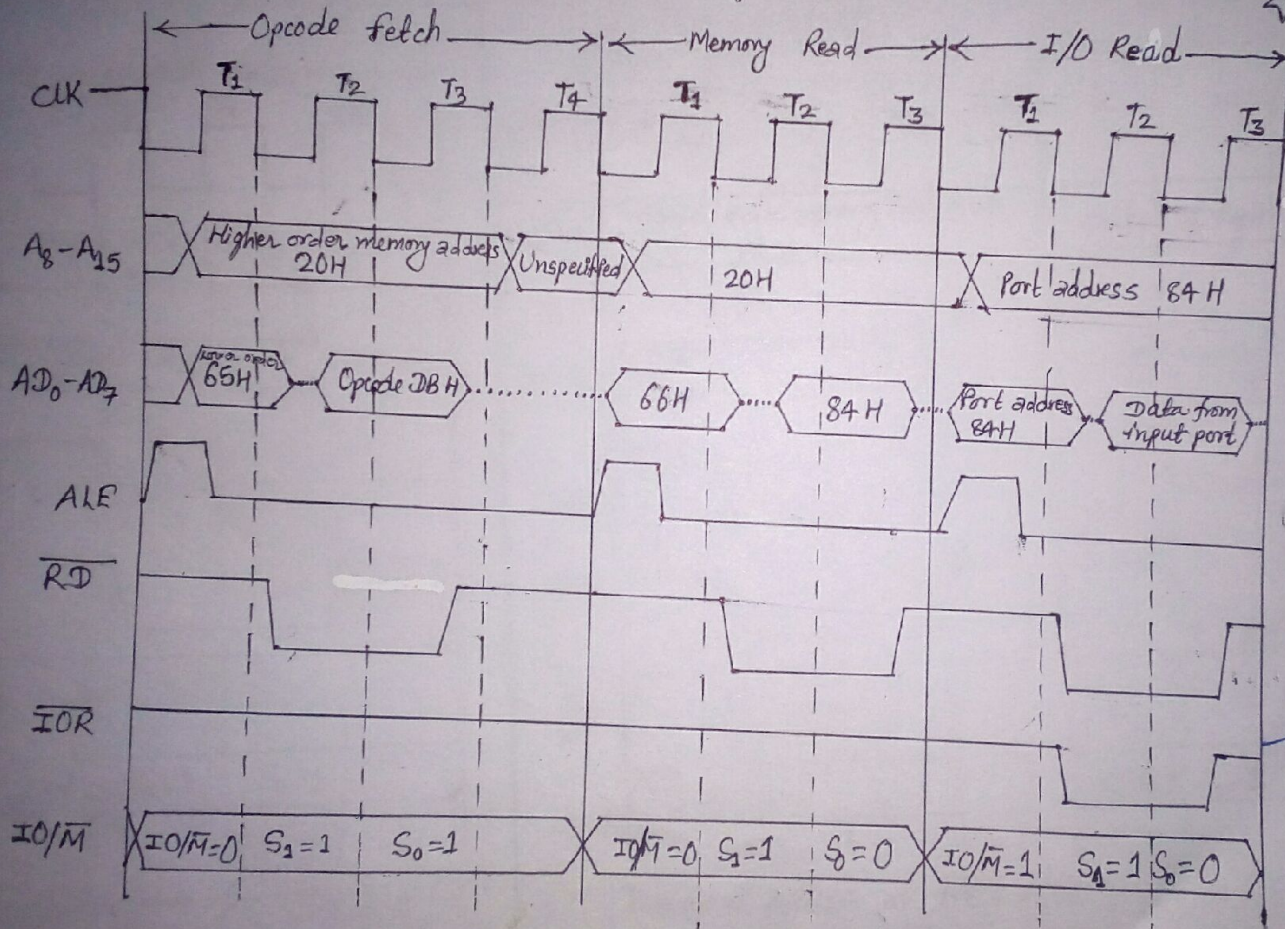 Opcode fetch Memory Read I/O Read
CLK T1 T2 T3 T4 T1 T2 T3 T1 T2 T3
A8-A15 Higher order memory address Unspecified 20H Port address 84H
20H
AD0-AD7 Lower order Opcode DBH 66H 84H Port address Data from
65H 84H input port
ALE
R̅D̅
I̅O̅R̅
IO/M̅ IO/M̅=0 S1=1 S0=1 IO/M̅=0 S1=1 S=0 IO/M̅=1 S1=1 S0=0